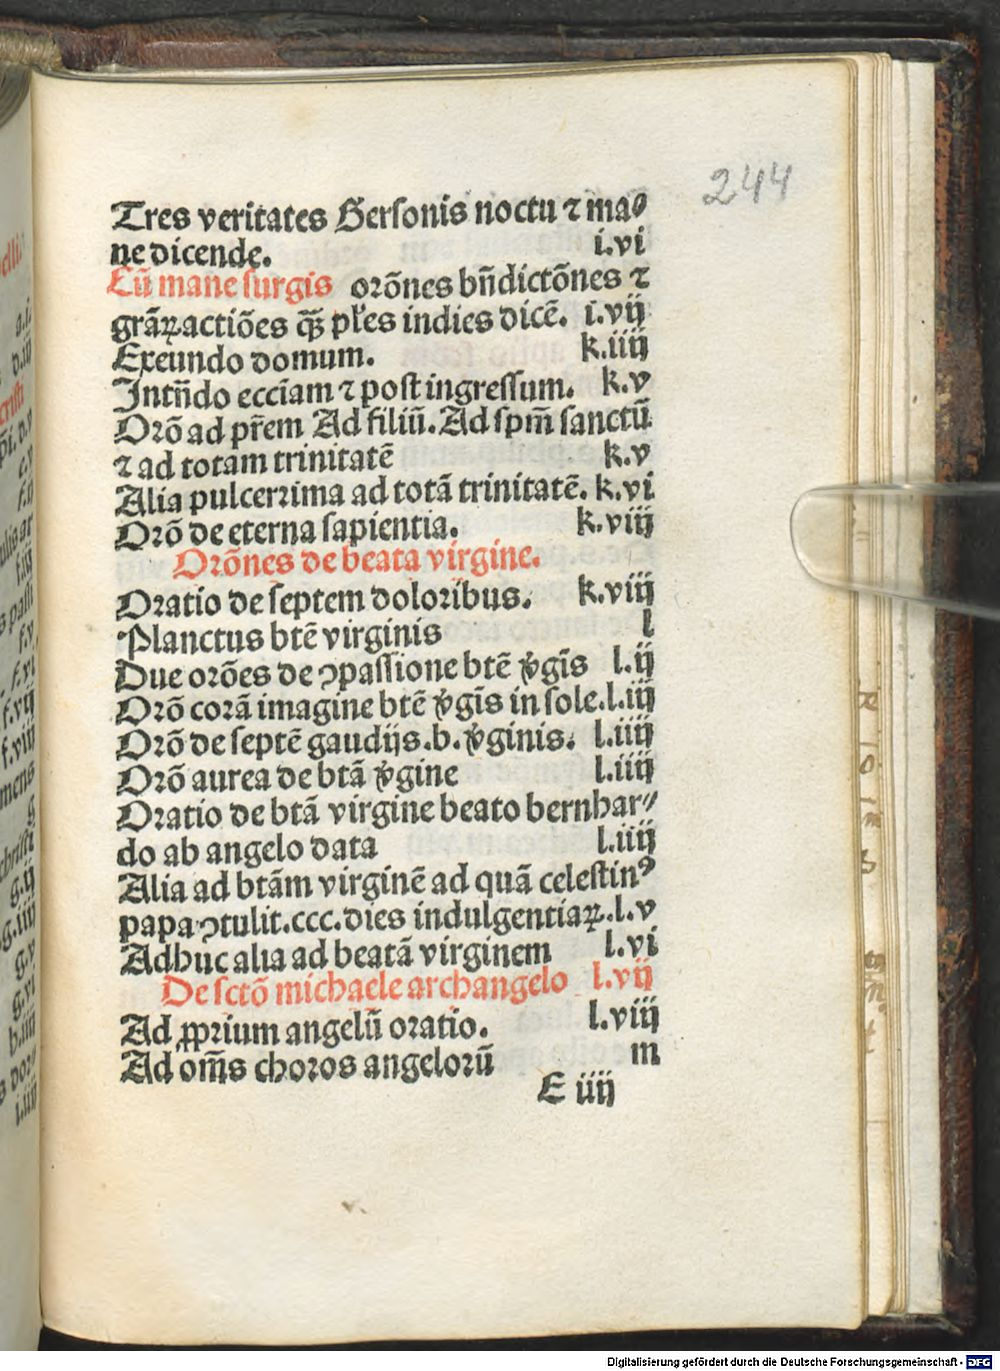 244
Tres veritates Gersonis noctu ⁊ ma⸗
ne dicende. i.vi
Cū mane surgis orōnes bn̄dictōnes ⁊
grāꝝactiōes qͣs pl̄es indies dicē. i.vij
Exeundo domum. k.iiij
Intrn̄do eccīam ⁊ post ingressum. k.v
Orō ad pr̄em Ad filiū. Ad spm̄ sanctū
⁊ ad totam trinitatē k.v
Alia pulcerrima ad totā trinitatē. k.vi
Orō de eterna sapientia. k.viij
Orōnes de beata virgine.
Oratio de septem doloribus. k.viij
Planctus btē virginis l
Due orōes de ꝯpassione btē v̓gīs l.ij
Orō corā imagine btē v̓gīs in sole. l.iij
Orō de septē gaudijs .b. v̓ginis. l.iiij
Orō aurea de btā v̓gine l.iiij
Oratio de btā virgine beato bernhar⸗
do ab angelo data l.iiij
Alia ad btām virginē ad quā celestinꝰ
papa ꝯtulit .ccc. dies indulgentiaꝝ. l.v
Adhuc alia ad beatā virginem l.vi
De sctō michaele archangelo l.vij
Ad ꝓprium angelū oratio. l.viij
Ad om̄s choros angelorū m
E iiij
Digitalisierung gefördert durch die Deutsche Forschungsgemeinschaft - DFG